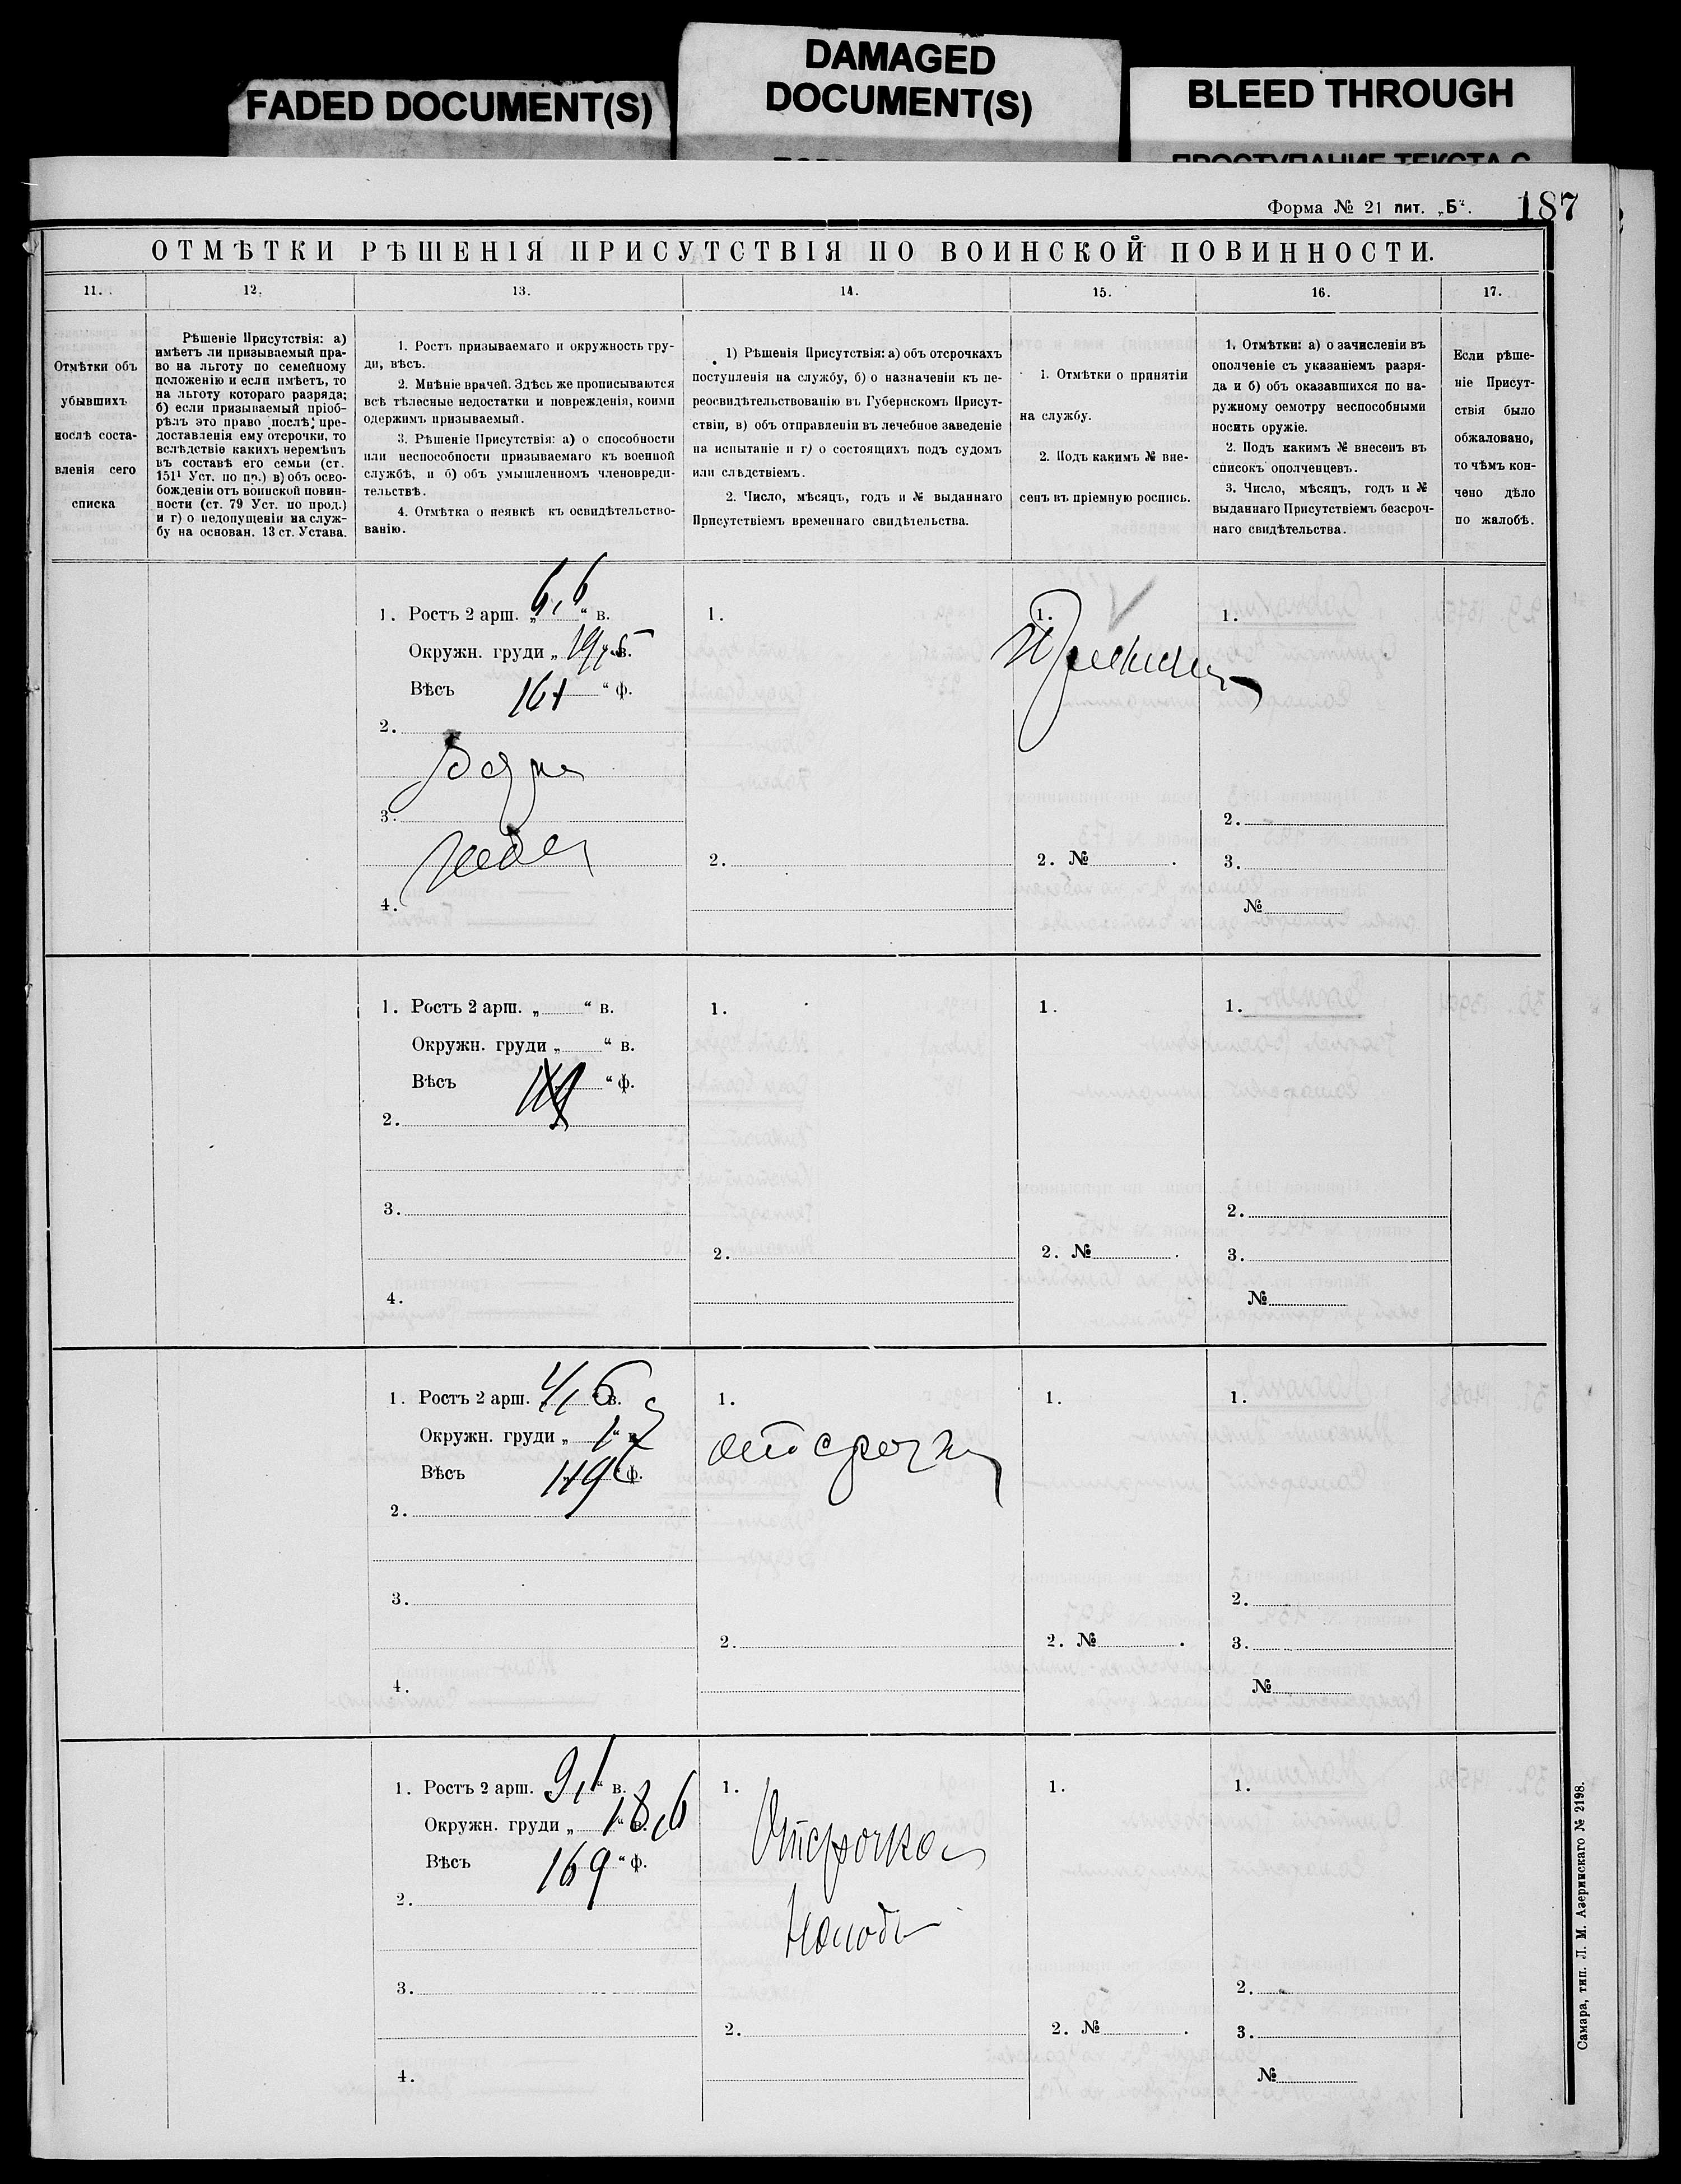 FADED DOCUMENT(S)
DAMAGED
DOCUMENT(S)
BLEED THROUGH
Форма № 21 лит. „Б“.
187
ОТМѢТКИ РѢШЕНІЯ ПРИСУТСТВІЯ ПО ВОИНСКОЙ ПОВИННОСТИ.
11.
12.
13.
14.
15.
16.
17.
Отмѣтки объ
убывшихъ
послѣ соста-
вленія сего
списка
Рѣшеніе Присутствія: а)
имѣетъ ли призываемый пра-
во на льготу по семейному
положенію и если имѣетъ, то
на льготу котораго разряда;
б) если призываемый пріоб-
рѣлъ это право послѣ пре-
доставленія ему отсрочки, то
вслѣдствіе какихъ перемѣнъ
въ составѣ его семьи (ст.
151¹ Уст. по пр.) в) объ осво-
божденіи отъ воинской повин-
ности (ст. 79 Уст. по прод.)
и г) о недопущеніи на служ-
бу на основан. 13 ст. Устава.
1. Ростъ призываемаго и окружность гру-
ди, вѣсъ.
2. Мнѣніе врачей. Здѣсь же прописываются
всѣ тѣлесные недостатки и поврежденія, коими
одержимъ призываемый.
3. Рѣшеніе Присутствія: а) о способности
или неспособности призываемаго къ военной
службѣ, и б) объ умышленномъ членовреди-
тельствѣ.
4. Отмѣтка о неявкѣ къ освидѣтельство-
ванію.
1) Рѣшенія Присутствія: а) объ отсрочкахъ
поступленія на службу, б) о назначеніи къ пе-
реосвидѣтельствованію въ Губернскомъ Присут-
ствіи, в) объ отправленіи въ лечебное заведеніе
на испытаніе и г) о состоящихъ подъ судомъ
или слѣдствіемъ.
2. Число, мѣсяцъ, годъ и № выданнаго
Присутствіемъ временнаго свидѣтельства.
1. Отмѣтки о принятіи
на службу.
2. Подъ какимъ № вне-
сенъ въ пріемную роспись.
1. Отмѣтки: а) о зачисленіи въ
ополченіе съ указаніемъ разря-
да и б) объ оказавшихся по на-
ружному осмотру неспособными
носить оружіе.
2. Подъ какимъ № внесенъ въ
списокъ ополченцевъ.
3. Число, мѣсяцъ, годъ и №
выданнаго Присутствіемъ безсроч-
наго свидѣтельства.
Если рѣше-
ніе Присут-
ствія было
обжаловано,
то чѣмъ кон-
чено дѣло
по жалобѣ.
1. Ростъ 2 арш. „ 6,6 “ в.
Окружн. груди „ “ в.
Вѣсъ 161 “ ф.
2.
3.
4.
1.
2.
1.
2. №
1.
2.
3.
№
1. Ростъ 2 арш. „ “ в.
Окружн. груди „ “ в.
Вѣсъ “ ф.
2.
3.
4.
1.
2.
1.
2. №
1.
2.
3.
№
1. Ростъ 2 арш. „ 4,6 “ в.
Окружн. груди „ “ в.
Вѣсъ “ ф.
2.
3.
4.
1.
отсрочка
2.
1.
2. №
1.
2.
3.
№
1. Ростъ 2 арш. „ 9,1 “ в.
Окружн. груди „ 18,6 “ в.
Вѣсъ 169 “ ф.
2.
3.
4.
1.
Отсрочка
2.
1.
2. №
1.
2.
3.
№
Самара, тип. Л. М. Азеринскаго № 2198.